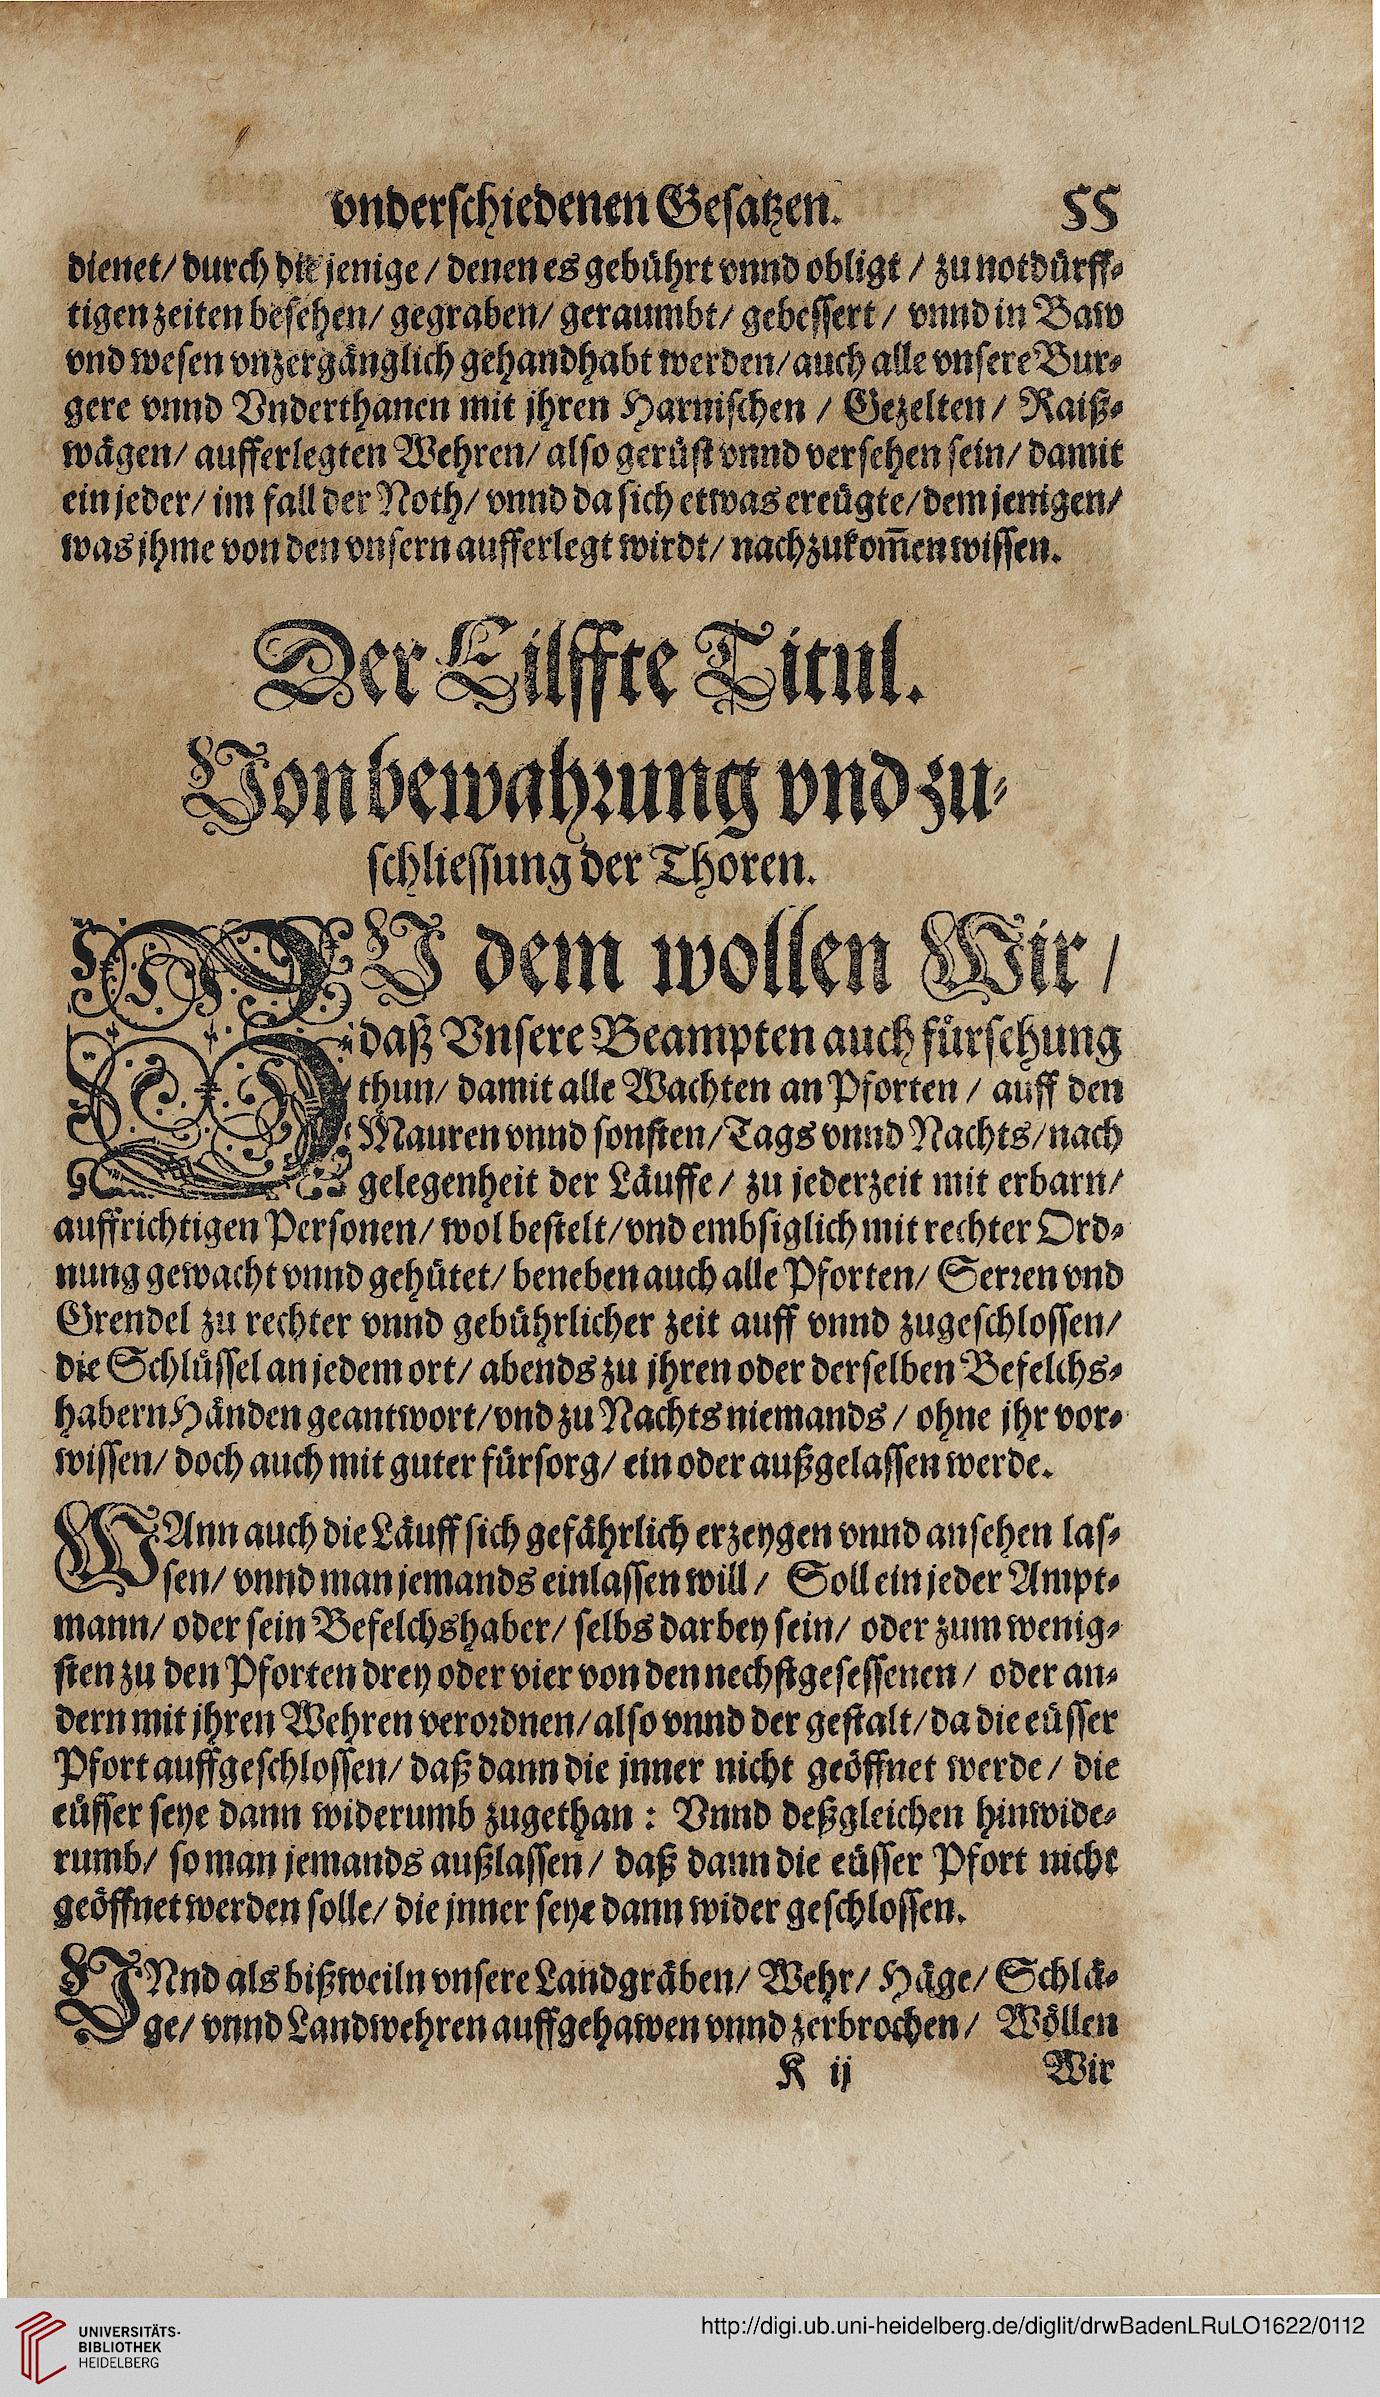 vnderschiedenen Gesatzen. 55
dienet/ durch die jenige / denen es gebührt vnnd obligt / zu notdürff⸗
tigen zeiten besehen/ gegraben/ geraumbt/ gebessert / vnnd in Baw
vnd wesen vnzergänglich gehandhabt werden/ auch alle vnsere Bur⸗
gere vnnd Vnderthanen mit jhren Harnischen / Gezelten / Raiß⸗
wägen/ aufferlegten Wehren/ also gerüst vnnd versehen sein/ damit
ein jeder/ im fall der Noth/ vnnd da sich etwas ereügte/ dem jenigen/
was jhme von den vnsern aufferlegt wirdt/ nachzukom̃en wissen.
Der Eilffte Titul.
Von bewahrung vnd zu⸗
schliessung der Thoren.
ZU dem wollen Wir /
daß Vnsere Beampten auch fürsehung
thun/ damit alle Wachten an Pforten / auff den
Mauren vnnd sonsten/ Tags vnnd Nachts/ nach
gelegenheit der Läuffe / zu jederzeit mit erbarn/
auffrichtigen Personen/ wol bestelt/ vnd embsiglich mit rechter Ord⸗
nung gewacht vnnd gehütet/ beneben auch alle Pforten/ Serren vnd
Grendel zu rechter vnnd gebührlicher zeit auff vnnd zugeschlossen/
die Schlüssel an jedem ort/ abends zu jhren oder derselben Befelchs⸗
habern Händen geantwort/ vnd zu Nachts niemands / ohne jhr vor⸗
wissen/ doch auch mit guter fürsorg/ ein oder außgelassen werde.
WAnn auch die Läuff sich gefährlich erzeygen vnnd ansehen las⸗
sen/ vnnd man jemands einlassen will / Soll ein jeder Ampt⸗
mann/ oder sein Befelchshaber/ selbs darbey sein/ oder zum wenig⸗
sten zu den Pforten drey oder vier von den nechstgesessenen / oder an⸗
dern mit jhren Wehren verordnen/ also vnnd der gestalt/ da die eüsser
Pfort auffgeschlossen/ daß dann die jnner nicht geöffnet werde / die
eüsser seye dann widerumb zugethan : Vnnd deßgleichen hinwide⸗
rumb/ so man jemands außlassen / daß dann die eüsser Pfort nicht
geöffnet werden solle/ die jnner seye dann wider geschlossen.
VNnd als bißweiln vnsere Landgräben/ Wehr/ Häge/ Schlä⸗
ge/ vnnd Landwehren auffgehawen vnnd zerbrochen / Wöllen
K ij Wir
UNIVERSITÄTS-
BIBLIOTHEK
HEIDELBERG
http://digi.ub.uni-heidelberg.de/diglit/drwBadenLRuLO1622/0112